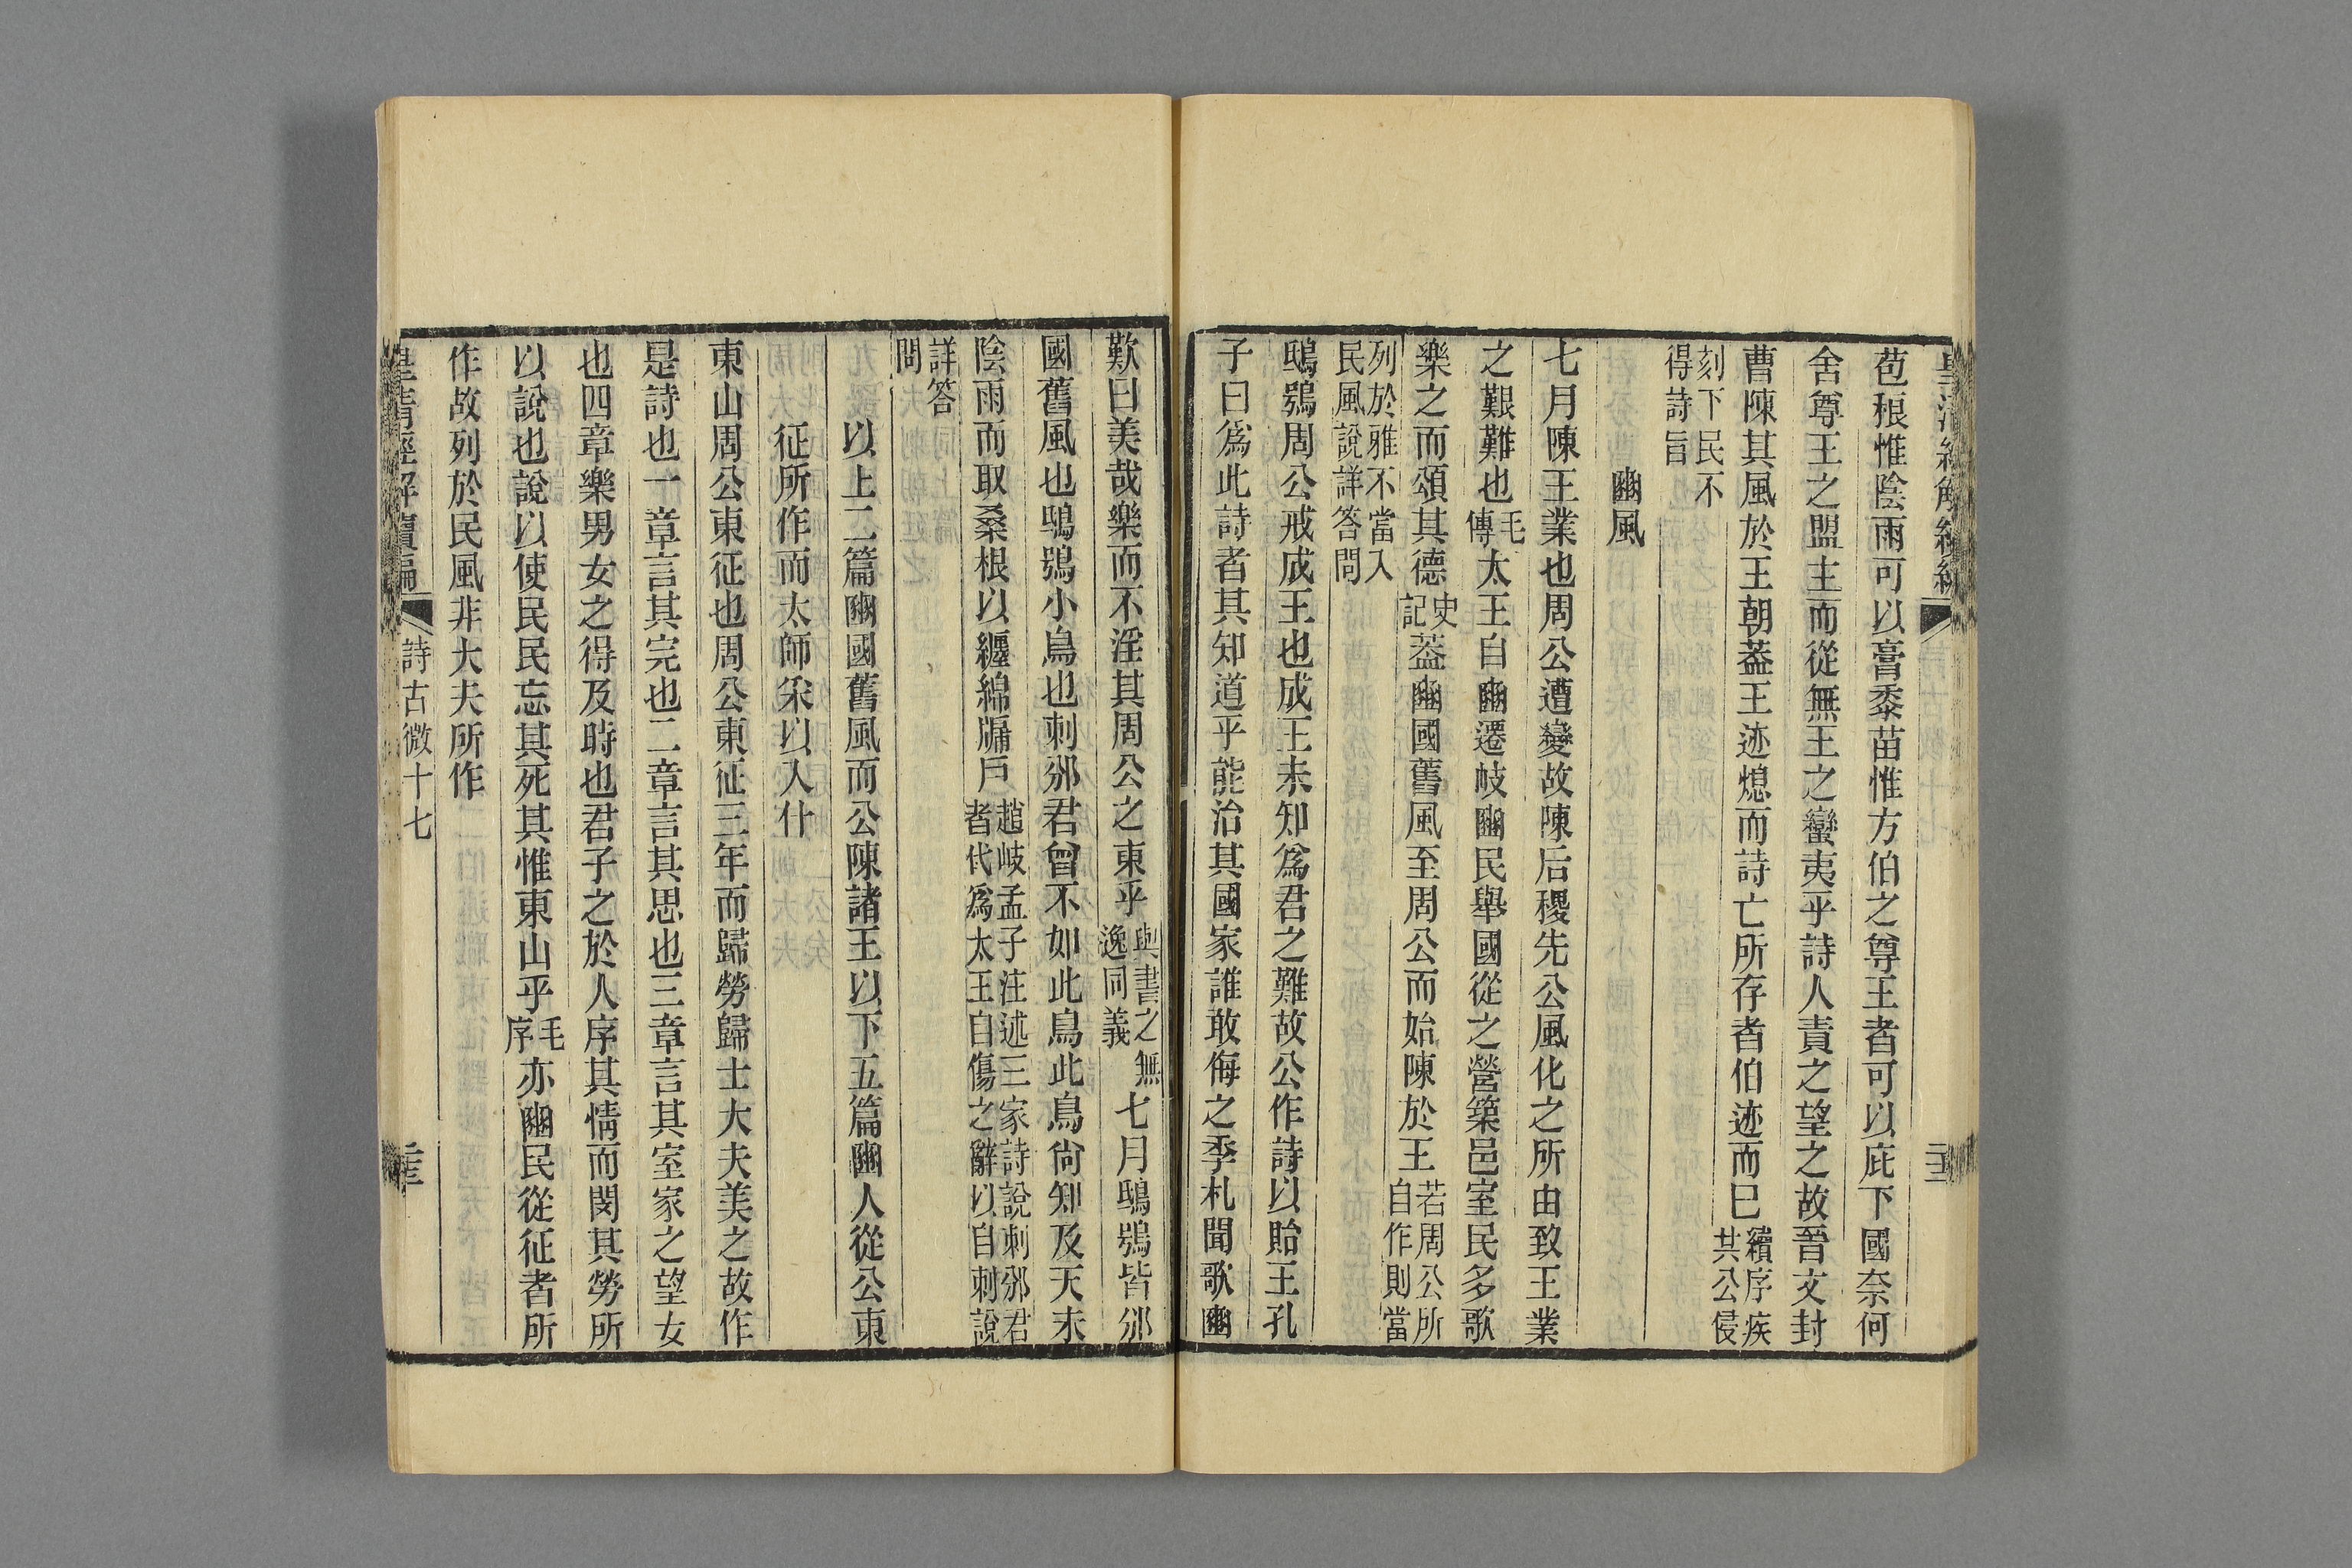 苞稂惟陰雨可以膏黍苗惟方伯之尊王者可以庇下國奈何
舍尊王之盟主而從無王之蠻夷乎詩人責之望之故晉文封
曹陳其風於王朝葢王迹熄而詩亡所存者伯迹而巳續序疾共公侵
刻下民不得詩旨
豳風
七月陳王業也周公遭變故陳后稷先公風化之所由致王業
之艱難也毛傳太王自豳遷岐豳民舉國從之營築邑室民多歌
樂之而頌其德史記葢豳國舊風至周公而始陳於王若周公所自作則當
列於雅不當入民風說詳答問
鴟鴞周公戒成王也成王未知爲君之難故公作詩以貽王孔
子曰爲此詩者其知道乎能治其國家誰敢侮之季札聞歌豳
歎曰美哉樂而不淫其周公之東乎與書之無逸同義七月鴟鴞皆邠
國舊風也鴟鴞小鳥也刺邠君曾不如此鳥此鳥尙知及天未
陰雨而取桑根以纏綿牖戶趙岐孟子注述三家詩說刺邠君者代爲太王自傷之辭以自刺說
詳答問
以上二篇豳國舊風而公陳諸王以下五篇豳人從公東
征所作而太師采以入什
東山周公東征也周公東征三年而歸勞歸士大夫美之故作
是詩也一章言其完也二章言其思也三章言其室家之望女
也四章樂男女之得及時也君子之於人序其情而閔其勞所
以說也說以使民民忘其死其惟東山乎毛序亦豳民從征者所
作故列於民風非大夫所作
皇清經解續編
詩古微十七